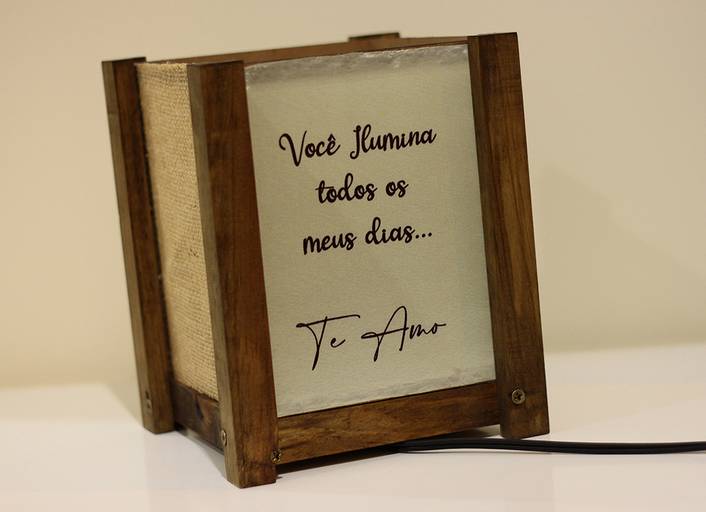 Você Ilumina
todos os
meus dias...
Te Amo